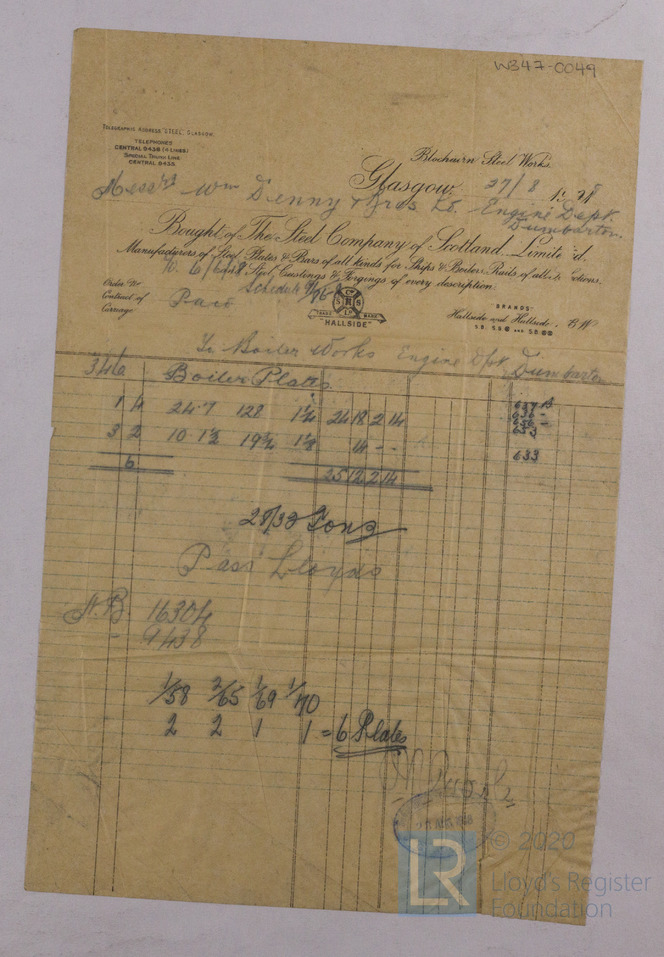 W347-0049
TELEGRAPHIC ADDRESS "STEEL, GLASGOW"
TELEPHONES
CENTRAL 9436 (4 LINES)
SPECIAL TRUNK LINE
CENTRAL 9435
Blochairn Steel Works.
Glasgow, 27/8 1928
Mess'rs Wm Denny & Bros Ld. Engine Dept.
Dumbarton.
Bought of The Steel Company of Scotland, Limited.
Manufacturers of Steel Plates & Bars of all kinds for Ships & Boilers, Rails of all Sections,
Steel Castings & Forgings of every description.
Order No
Contract of
Carriage Paid
TRADE MARK
"HALLSIDE"
BRANDS:
Hallside and Hallside, B.W
To Boiler Works Engine Dept Dumbarton
346a Boiler Plates
1 4 24·7 128 1¼ 24 18 2 14
3 2 10·1½ 19¾ 1⅛ 14 - -
633
6 25 12 2 14
28/32 Tons
Pass Lloyds
N.B. 16304
" 9438
1/58 2/65 1/69 1/70
2 2 1 1 = 6 Plates
LR
© 2020
Lloyd's Register
Foundation